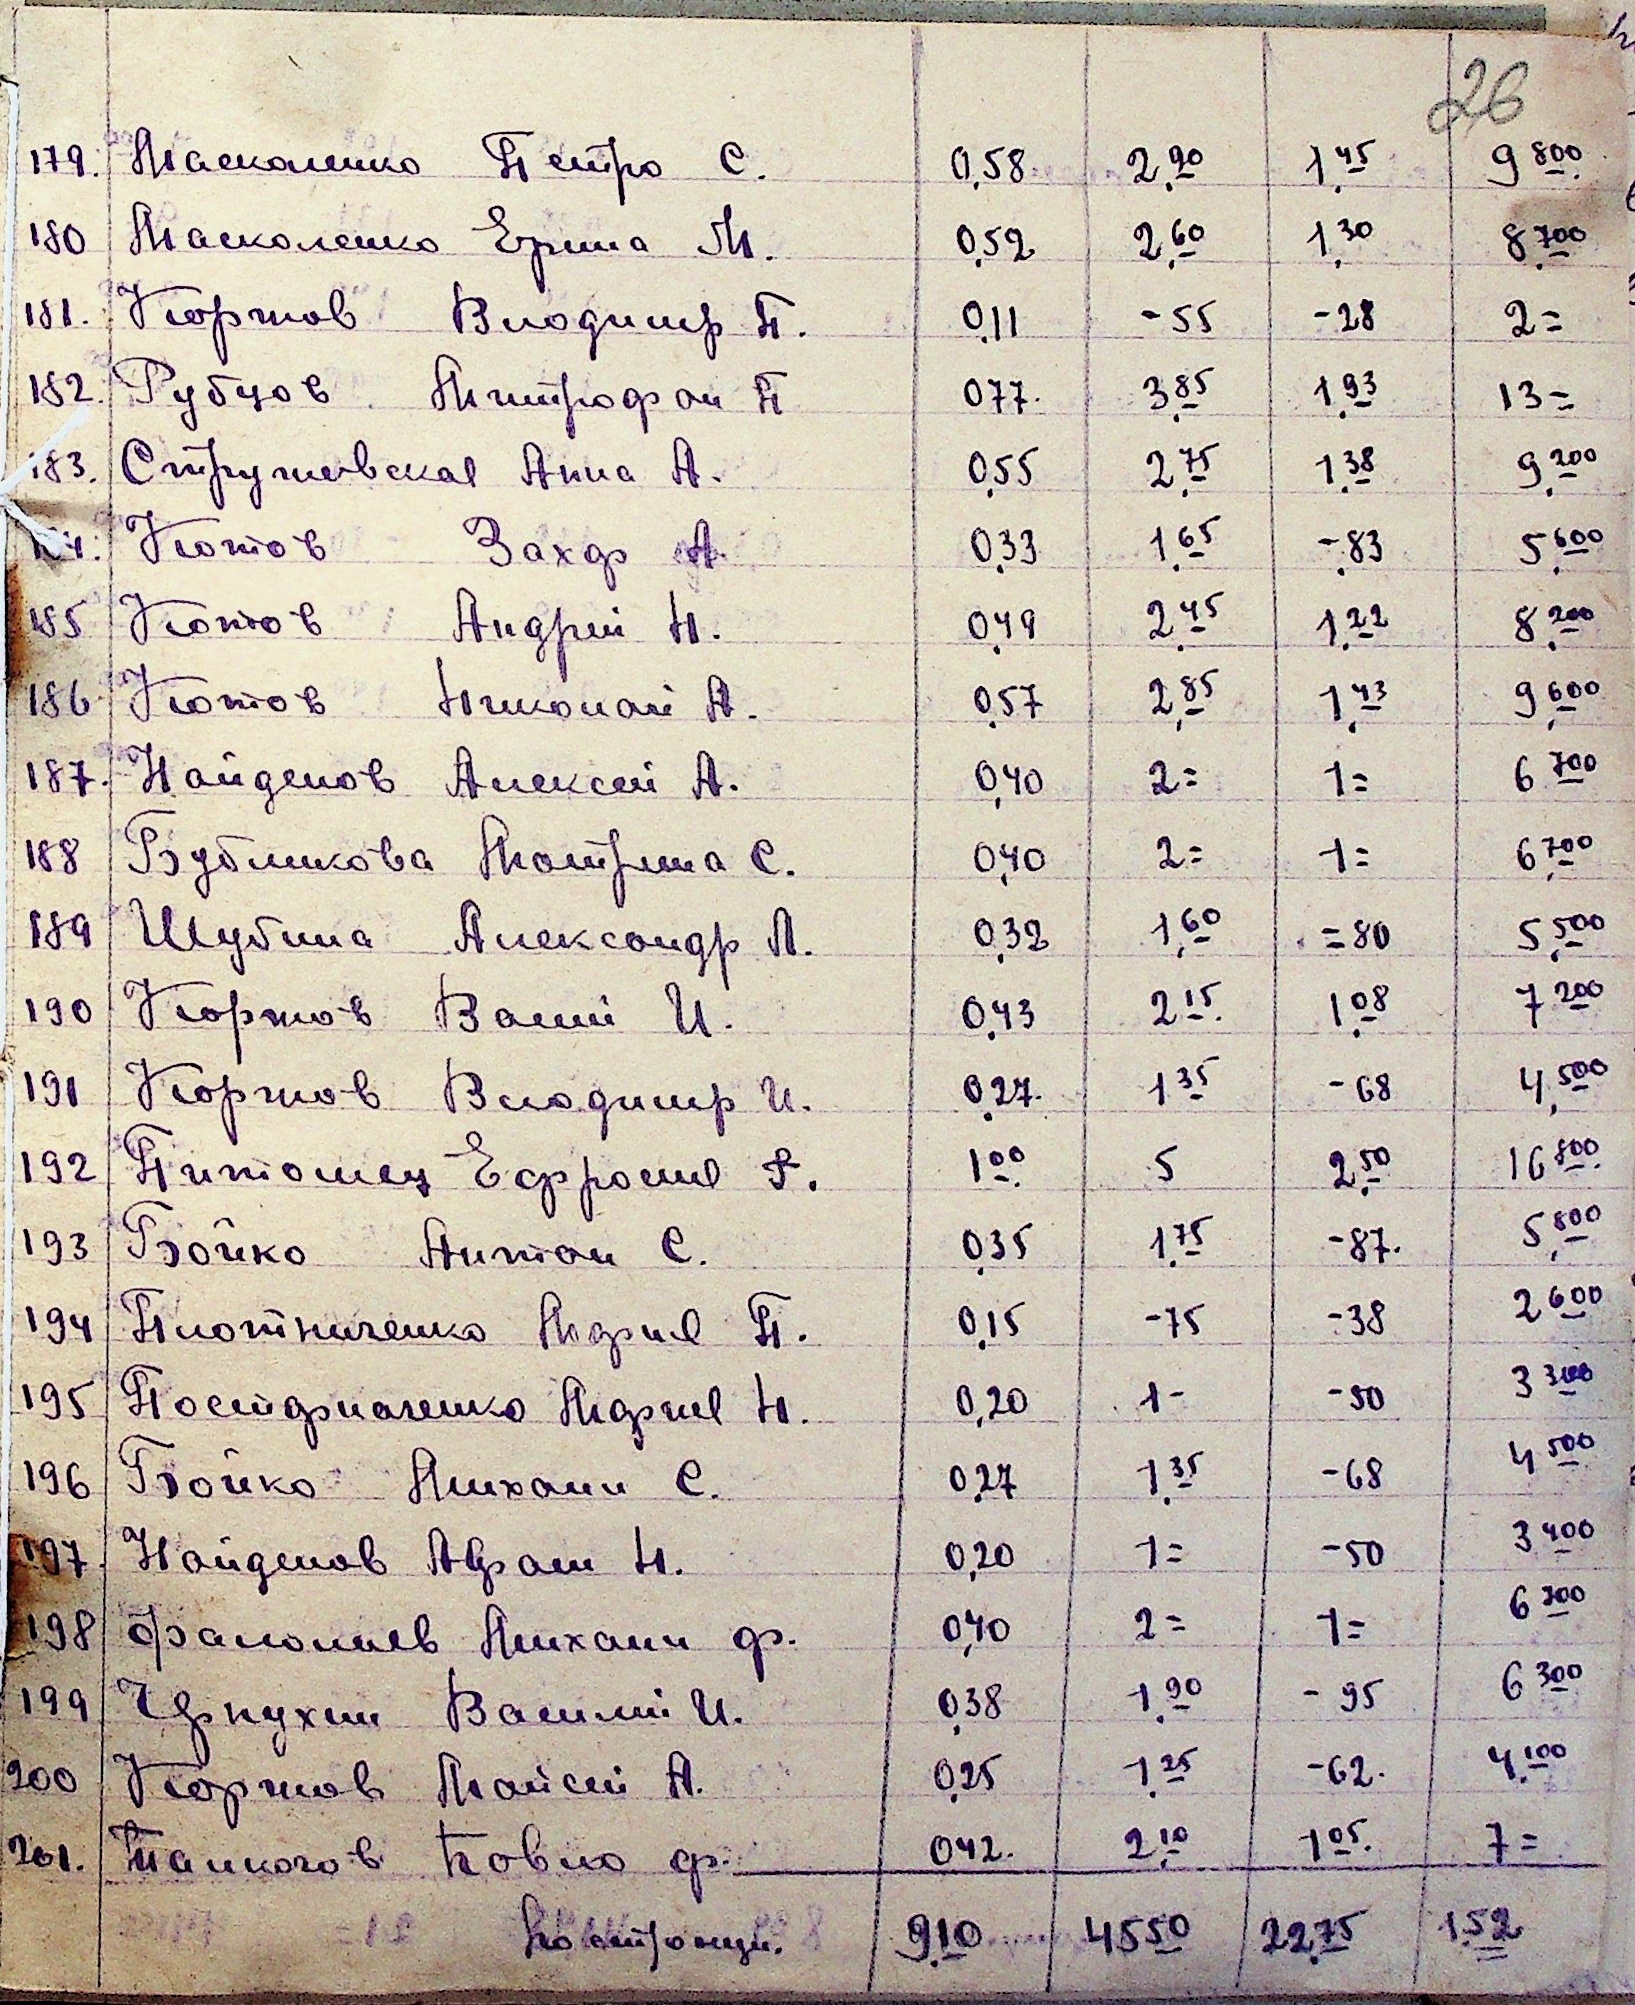 26
179. Масколенко Петро С. 0,58 2,90 1,45 9 800
180 Масколенко Ерина М. 0,52 2,60 1,30 8,700
181. Коржов Владимир П. 0,11 -55 -28 2=
182. Рубцов Митрофан П 0,77 3,85 1,93 13=
183. Стружевская Анна А. 0,55 2,75 1,38 9,200
184. Котов Захар А. 0,33 1,65 -,83 5,600
185 Котов Андрей Н. 0,49 2,45 1,22 8,200
186 Котов Николай А. 0,57 2,85 1,43 9,600
187. Найденов Алексей А. 0,40 2= 1= 6 700
188 Бубликова Мотрина С. 0,40 2= 1= 6,700
189 Шубина Александр Л. 0,32 1,60 =80 5,500
190 Коржов Васил И. 0,43 2 15 1,08 7 200
191 Коржов Владимир И. 0,27 1 35 -68 4,500
192 Питомец Ефросия 1 00 5 2,50 16 800
193 Бойко Антон С. 0,35 1,75 -87. 5,800
194 Плотниченко Мария П. 0,15 -75 -38 2 600
195 Мария Н. 0,20 1- -50 3 300
196 Бойко Михаил С. 0,27 1,35 -68 4 500
197. Найденов Афан Н. 0,20 1= -50 3 400
198 Михаил Ф. 0,40 2= 1= 6 700
199 Чепухин Василий И. 0,38 1,90 -95 6 300
200 Коржов Майсей А. 0,25 1,25 -62. 4,100
201. Павло Ф. 0,42. 2,10 1 05. 7=
По странци. 9,10 45 50 22,75 1,52